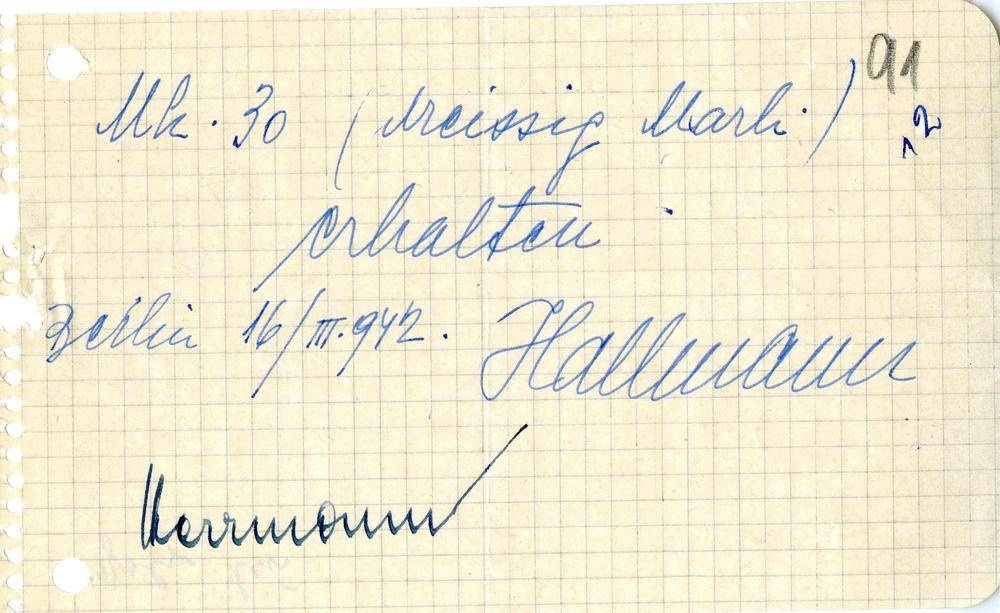 91
12
Mk. 30 (dreissig Mark.)
erhalten
Berlin 16/III.942. Hallmann
Herrmann